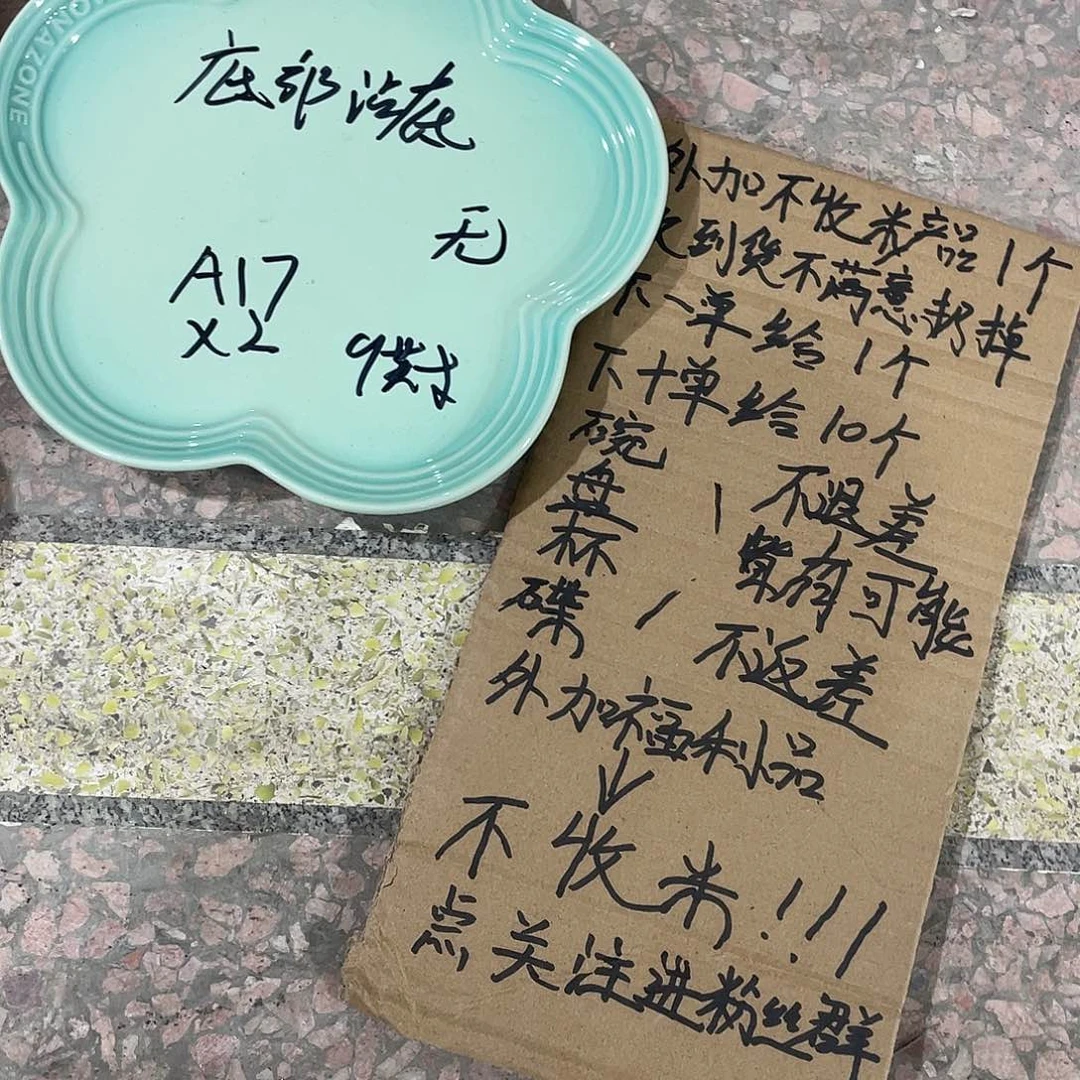 底部治底
无
A17
x2
9樊才
外加不收米产品1个
到货不满意扔掉
下一单给1个
下十单给10个
碗
盘 | 不退差
杯 皆有可能
碟 / 不返差
外加福利品
↓
不收米!!!
点关注进粉丝群